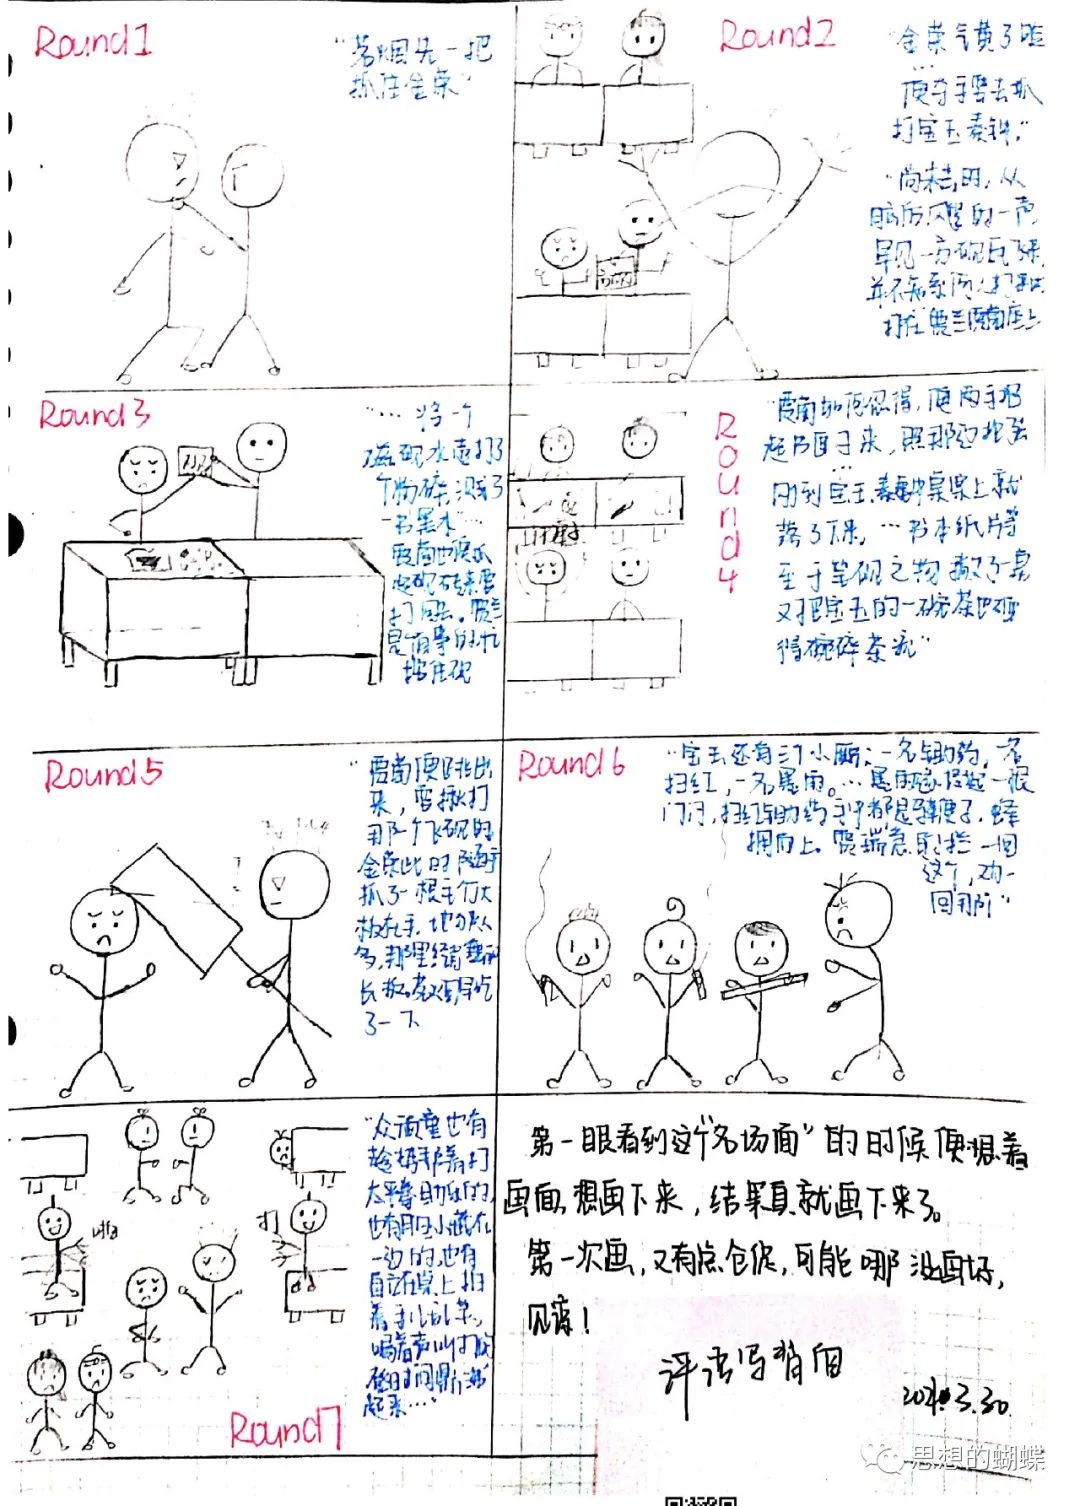 Round1
"茗烟先一把
抓住金荣"
Round2
"金荣气黄了脸
…
便夺手要去抓
打宝玉秦钟。"
"尚未去时，从
脑后飕的一声
早见一方砚瓦飞来
并不知系何人打来
打在贾兰贾菌座上
Round3
"…… 将一个
磁砚水壶打了
个粉碎，溅了
一书墨水"…
贾菌也便抓
起砚砖来要
打回去。贾兰
是省事的忙
按住砚
Round4
"贾菌如何忍得，便两手抱
起书匣子来，照那边抡去
…
刚到宝玉秦钟桌案上就
落了下来，…书本纸片等
至于笔砚之物撒了一桌
又把宝玉的一碗茶也砸
得碗碎茶流"
Round5
"贾菌便跳出
来，要揪打
那个飞砚的
金荣此时随手
抓了一根毛竹大
板在手，地狭人
多，那里经得舞动
长板。茗烟早吃
了一下
Round6
"宝玉还有三个小厮：一名锄药，一名
扫红，一名墨雨。…墨雨遂掇起一根
门闩，扫红锄药手中都是马鞭子，蜂
拥而上。贾瑞急的拦一回
这个，劝一
回那个"
啪
打
"众顽童也有
趁势帮着打
太平拳助乐的，
也有胆小藏在
一边的，也有
直立在桌上拍
着手儿乱笑，
喝着声儿叫打的
登时间鼎沸
起来…"
Round7
第一眼看到这个"名场面"的时候便想着
画面，想画下来，结果真就画下来了。
第一次画，又有点仓促，可能哪没画好，
见谅！
评语写背面
3.30
思想的蝴蝶